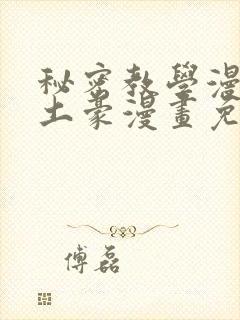 秘密教學漫
土豪漫畫免
傅磊